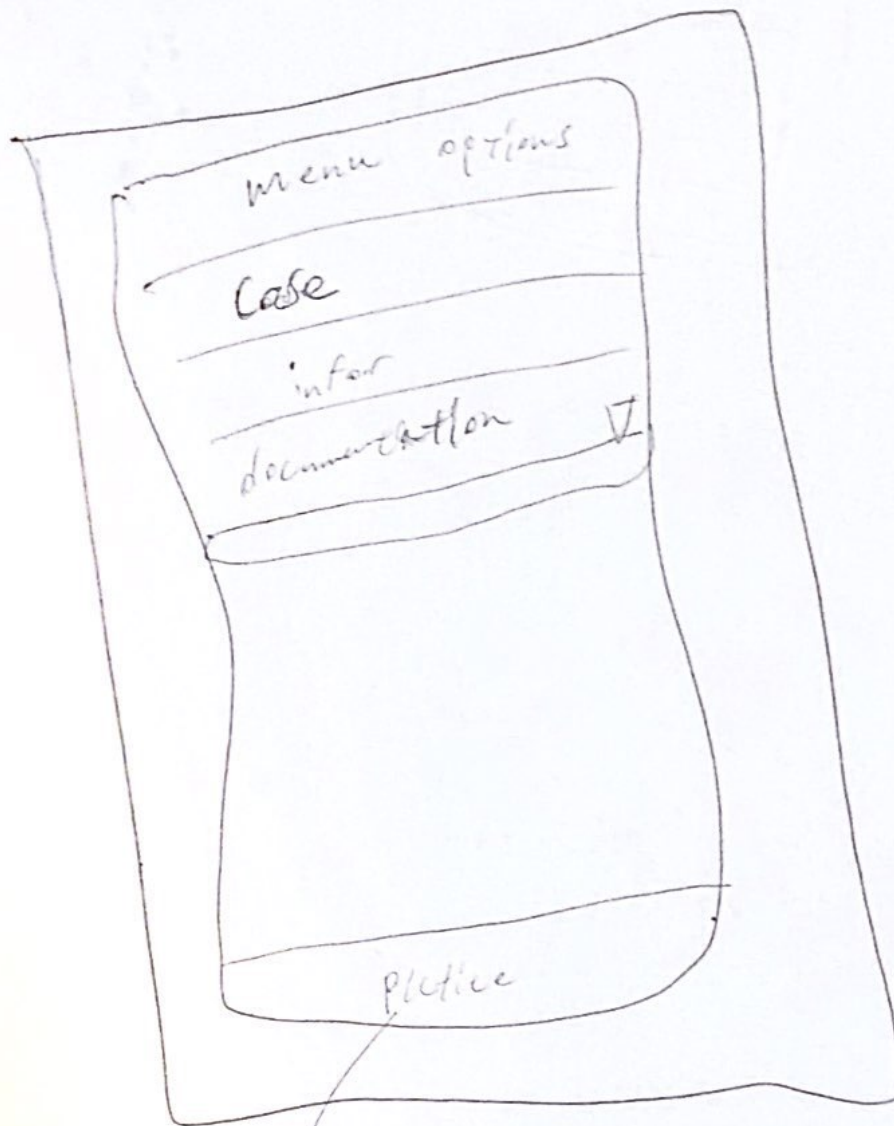 menu options
Case
infor
documentation
picture